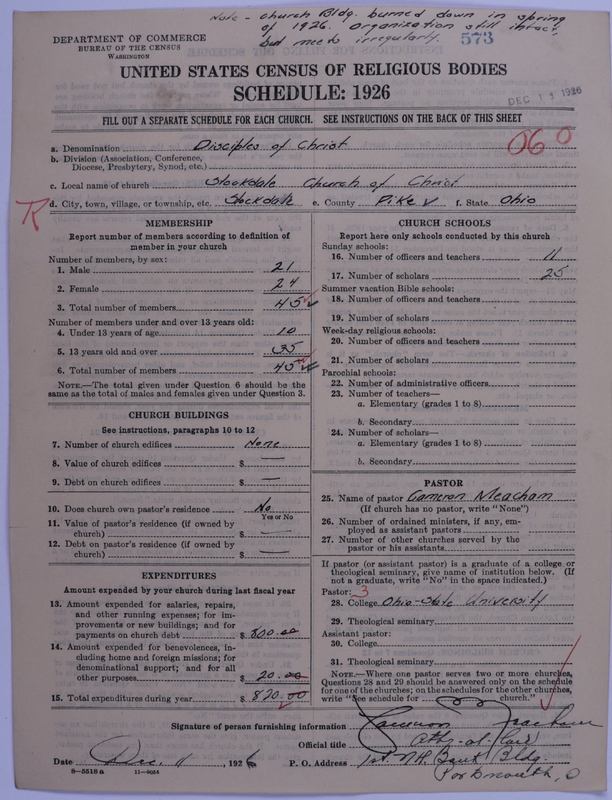 Note - Church Bldg. burned down in spring
of 1926. Organization still intact
but meets irregularly.
573
DEPARTMENT OF COMMERCE
BUREAU OF THE CENSUS
WASHINGTON
UNITED STATES CENSUS OF RELIGIOUS BODIES
SCHEDULE: 1926
DEC 11 1926
FILL OUT A SEPARATE SCHEDULE FOR EACH CHURCH. SEE INSTRUCTIONS ON THE BACK OF THIS SHEET
060
a. Denomination Disciples of Christ
b. Division (Association, Conference,
Diocese, Presbytery, Synod, etc.)
c. Local name of church Stockdale Church of Christ
R d. City, town, village, or township, etc. Stockdale e. County Pike f. State Ohio
MEMBERSHIP
Report number of members according to definition of
member in your church
Number of members, by sex:
1. Male 21
2. Female 24
3. Total number of members 45
Number of members under and over 13 years old:
4. Under 13 years of age 10
5. 13 years old and over 35
6. Total number of members 45
NOTE.—The total given under Question 6 should be the
same as the total of males and females given under Question 3.
CHURCH BUILDINGS
See instructions, paragraphs 10 to 12
7. Number of church edifices None
8. Value of church edifices $ —
9. Debt on church edifices $ —
10. Does church own pastor's residence No
Yes or No
11. Value of pastor's residence (if owned by
church) $ —
12. Debt on pastor's residence (if owned by
church) $ —
EXPENDITURES
Amount expended by your church during last fiscal year
13. Amount expended for salaries, repairs,
and other running expenses; for im-
provements or new buildings; and for
payments on church debt $ 800.00
14. Amount expended for benevolences, in-
cluding home and foreign missions; for
denominational support; and for all
other purposes $ 20.00
15. Total expenditures during year $ 820.00
CHURCH SCHOOLS
Report here only schools conducted by this church
Sunday schools:
16. Number of officers and teachers 11
17. Number of scholars 25
Summer vacation Bible schools:
18. Number of officers and teachers
19. Number of scholars
Week-day religious schools:
20. Number of officers and teachers
21. Number of scholars
Parochial schools:
22. Number of administrative officers
23. Number of teachers—
a. Elementary (grades 1 to 8)
b. Secondary
24. Number of scholars—
a. Elementary (grades 1 to 8)
b. Secondary
PASTOR
25. Name of pastor Cameron Meacham
(If church has no pastor, write "None")
26. Number of ordained ministers, if any, em-
ployed as assistant pastors
27. Number of other churches served by the
pastor or his assistants
If pastor (or assistant pastor) is a graduate of a college or
theological seminary, give name of institution below. (If
not a graduate, write "No" in the space indicated.)
Pastor: 3
28. College Ohio-State University
29. Theological seminary
Assistant pastor:
30. College
31. Theological seminary
NOTE.—Where one pastor serves two or more churches,
Questions 28 and 29 should be answered only on the schedule
for one of the churches; on the schedules for the other churches,
write "See schedule for church."
Signature of person furnishing information Cameron Meacham
Official title Atty-at-Law
Date Dec. 11, 1926 P. O. Address 1st. Nat'l Bank Bldg.
8-5518a 11-9054 Portsmouth, O